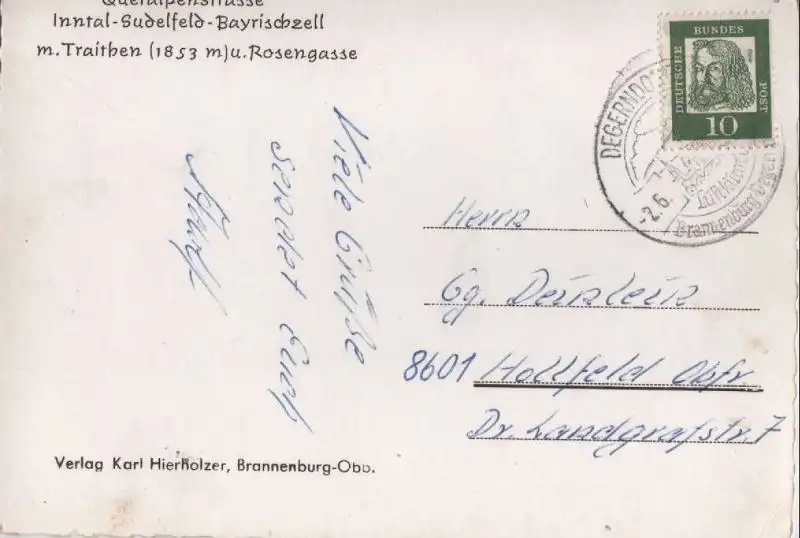 Queralpenstrasse
Inntal-Sudelfeld-Bayrischzell
m. Traithen (1853 m) u. Rosengasse
Viele Grüße
sendet Euch
DEUTSCHE
BUNDES
POST
10
DEGERNDO
-2.6.
Luftkurort
Brannenburg-Degern
Herrn
Gg. Deinlein
8601 Hollfeld Obfr.
Dr. Landgrafstr. 7
Verlag Karl Hierholzer, Brannenburg-Obb.